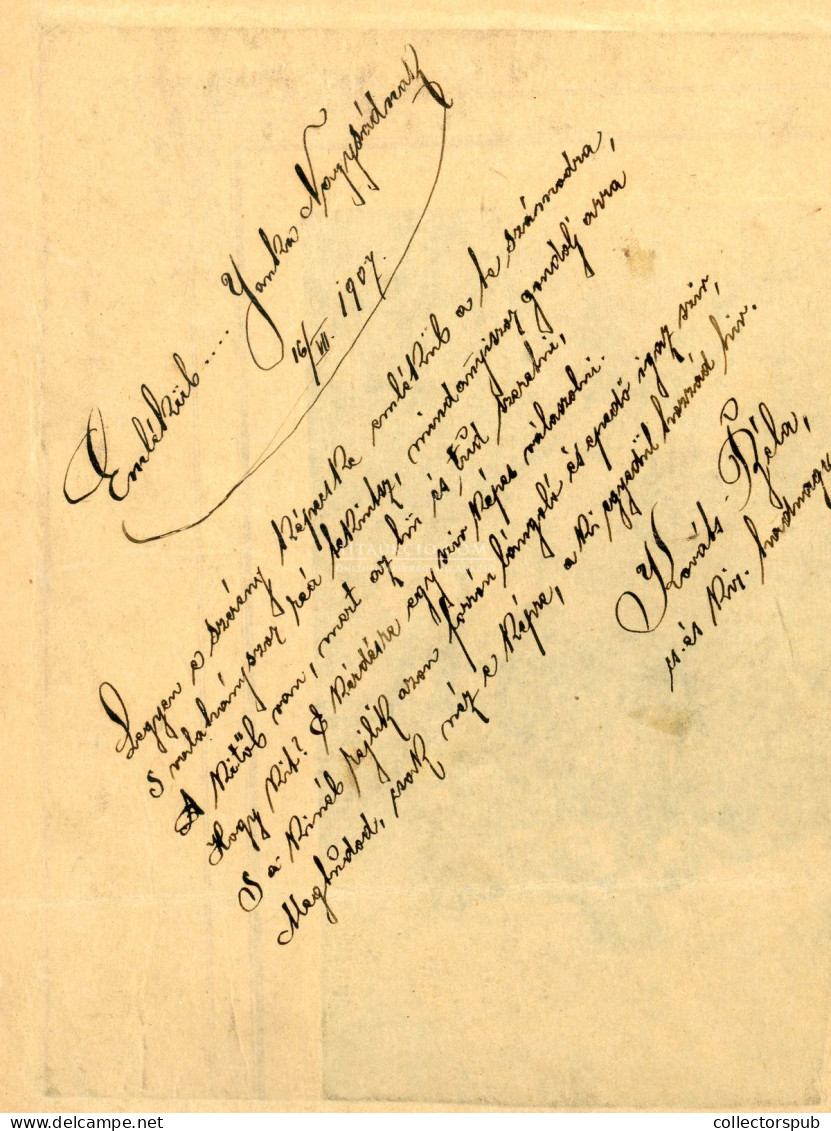 Emlékül.... Janka Nagysádnak
16/VII. 1907.
Legyen e szerény képecske emlékül a te számodra,
S valahányszor reá tekintesz, mindannyiszor gondolj arra
A kitől van, mert az hű és tud szeretni,
Hogy kit? E kérdésre egy szív képes válaszolni.
S a kinél rejlik azon forrón lángoló és epedő igaz szív,
Megtudod, csak nézz e képre, a ki egyedül hozzád hív.
Kováts Béla,
cs. és kir. hadnagy
collectorspub